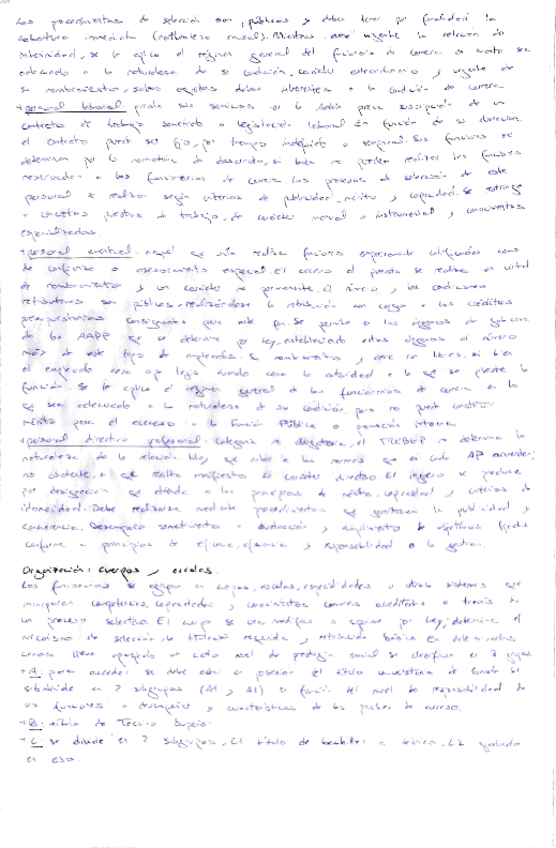 Los procedimientos de selección son públicos y debe tener por finalidad la
cobertura inmediata (naturaleza causal). Mientras esté vigente la relación de
interinidad, se le aplica el régimen general del funcionario de carrera en cuanto sea
adecuado a la naturaleza de su condición, carácter extraordinario y urgente de
su nombramiento, salvo aquellos derechos inherentes a la condición de carrera
+ personal laboral: presta sus servicios en la Admón previa suscripción de un
contrato de trabajo sometido a legislación laboral. En función de su duración
el contrato puede ser fijo, por tiempo indefinido o temporal. Sus funciones se
determinan por la normativa de desarrollo, si bien no pueden realizar las funciones
reservadas a los funcionarios de carrera. Los procesos de selección de este
personal se realizan según criterios de publicidad, mérito y capacidad. Se restringe
a concretos puestos de trabajo, de carácter manual o instrumental y conocimientos
especializados.
+ personal eventual: aquel que sólo realiza funciones expresamente calificadas como
de confianza o asesoramiento especial. El acceso al puesto se realiza en virtud
de nombramiento y con carácter no permanente. El número y las condiciones
retributivas son públicas, realizándose la retribución con cargo a los créditos
presupuestarios consignados para este fin. Se permite a los órganos de gobierno
de las AAPP que se determine por ley, estableciendo estos órganos el número
máx de este tipo de empleados. Su nombramiento y cese son libres, si bien
el empleado cesa cuando cese la autoridad a la que se preste la
función. Se le aplica el régimen general de los funcionarios de carrera en lo
que sea adecuado a la naturaleza de su condición, pero no puede constituir
mérito para el acceso a la Función Pública o promoción interna.
+ personal directivo profesional: categoría no obligatoria, el TREBEP no determina la
naturaleza de la relación sino que estará a las normas que en cada AP acuerde;
no obstante, se resalta manifiesto su carácter directivo. El ingreso se produce
por designación que atiende a los principios de mérito, capacidad y criterios de
idoneidad. Debe realizarse mediante procedimientos que garanticen la publicidad y
concurrencia. Desempeño sometimiento a evaluación y cumplimiento de objetivos fijados
conforme a principios de eficacia, eficiencia y responsabilidad de la gestión.
Organización: cuerpos y escalas.
Los funcionarios se agrupan en cuerpos, escalas, especialidades u otros sistemas que
incorporen competencias, capacidades y conocimientos comunes acreditados a través de
un proceso selectivo. El cuerpo se crea, modifica o suprime por ley, determina el
mecanismo de selección, la titulación requerida y retribución básica. En determinados
casos lleva aparejado un cierto nivel de prestigio social. Se clasifican en 3 grupos
+ A: para acceder se debe estar en posesión del título universitario de Grado. Se
subdivide en 2 subgrupos (A1 y A2) en función del nivel de responsabilidad de
las funciones a desempeñar y características de las pruebas de acceso.
+ B: título de Técnico Superior
+ C: se divide en 2 subgrupos, C1 título de bachiller o técnico, C2 graduado
en ESO.